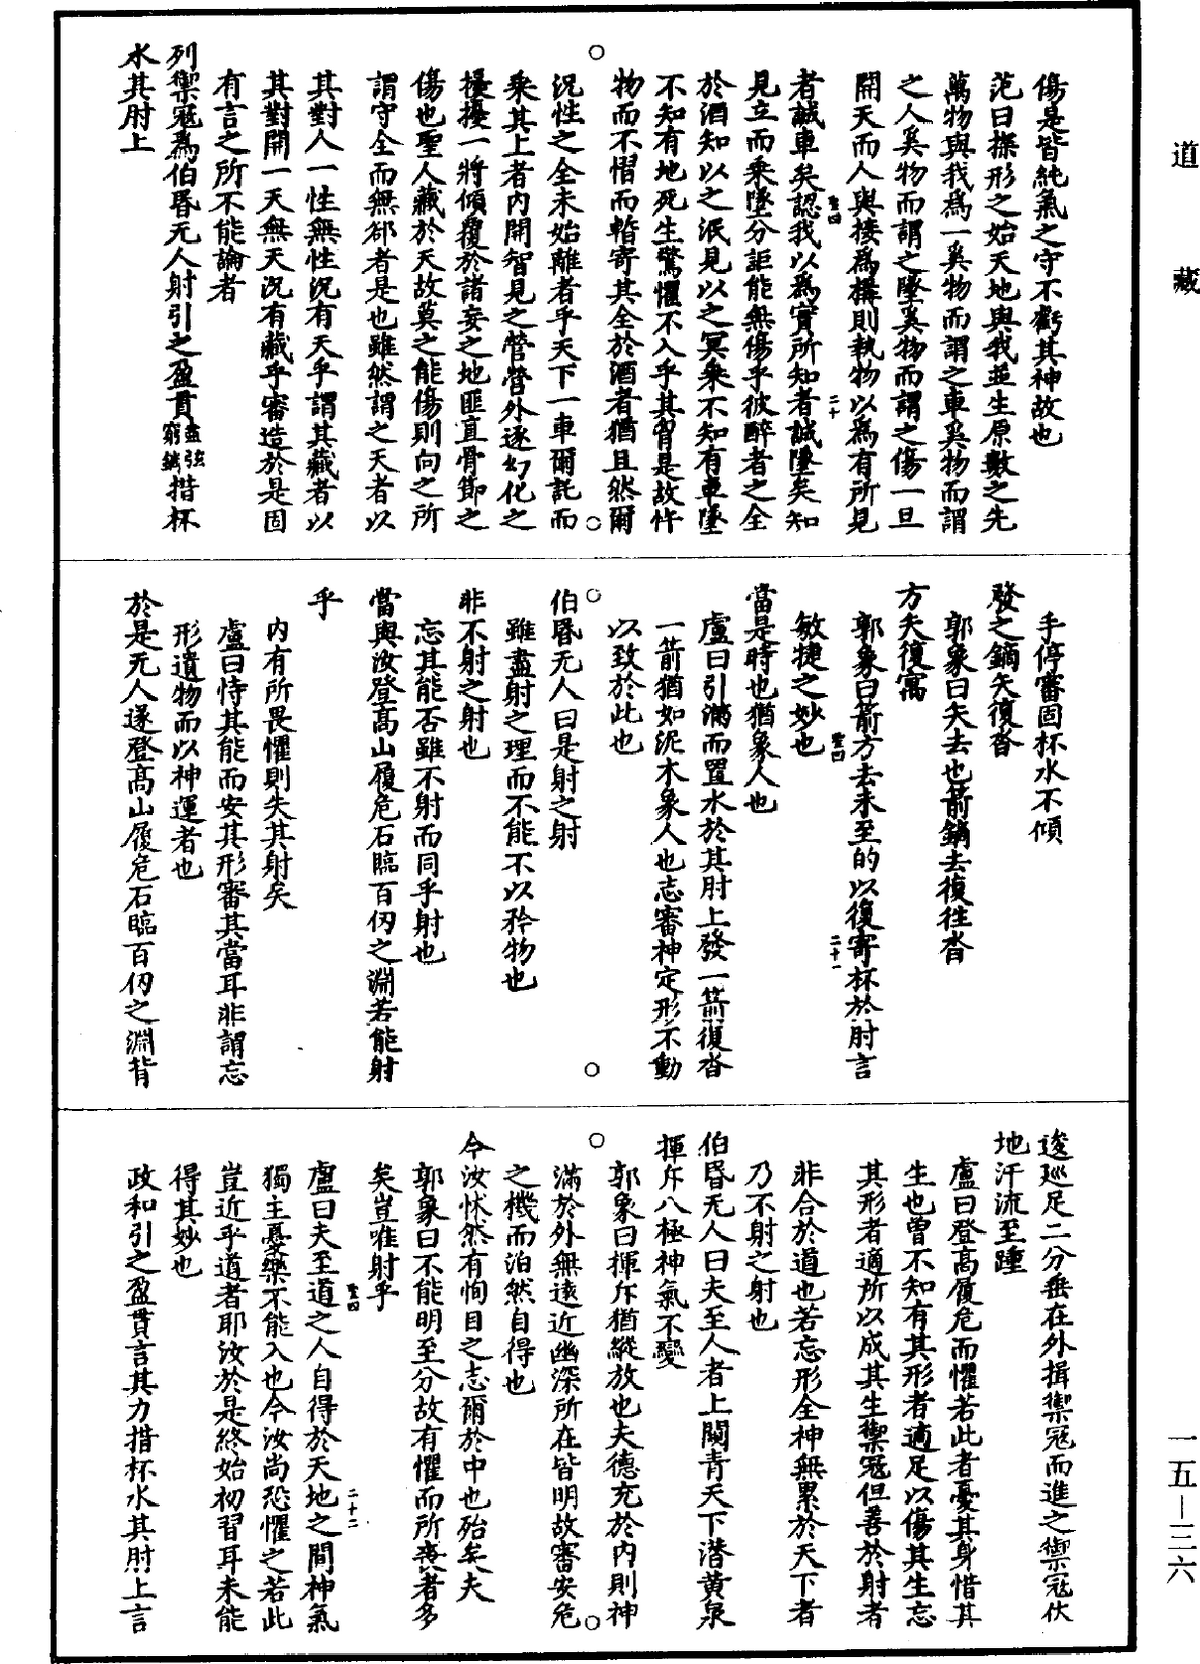 道藏
傷是皆純氣之守不虧其神故也
范曰搽形之始天地與我並生原數之先
萬物與我爲一奚物而謂之車奚物而謂
之人奚物而謂之墜奚物而謂之傷一旦
開天而人與接爲構則執物以爲有所見
者誠車矣認我以爲實所知者誠墜矣知
見立而乘墜分詎能無傷乎彼醉者之全
於酒知以之泯見以之冥乘不知有車墜
不知有地死生驚懼不入乎其胷是故忤
物而不慴而暫寄其全於酒者猶且然爾
況性之全未始離者乎天下一車爾託而
乘其上者內開智見之營營外逐幻化之
擾擾一將傾覆於諸妄之地匪直骨節之
傷也聖人藏於天故莫之能傷則向之所
謂守全而無郤者是也雖然謂之天者以
其對人一性無性況有天乎謂其藏者以
其對開一天無天況有藏乎審造於是固
有言之所不能論者
列禦寇爲伯昏无人射引之盈貫盡弦窮鏑措杯
水其肘上
手停審固杯水不傾
發之鏑矢復沓
郭象曰矢去也箭鏑去復往沓
方矢復寓
郭象曰箭方去未至的以復寄杯於肘言
敏捷之妙也
當是時也猶象人也
盧曰引滿而置水於其肘上發一箭復沓
一箭猶如泥木象人也志審神定形不動
以致於此也
伯昏无人曰是射之射
雖盡射之理而不能不以矜物也
非不射之射也
忘其能否雖不射而同乎射也
當與汝登高山履危石臨百仞之淵若能射
乎
內有所畏懼則失其射矣
盧曰恃其能而安其形審其當耳非謂忘
形遺物而以神運者也
於是无人遂登高山履危石臨百仞之淵背
逡巡足二分垂在外揖禦寇而進之禦寇伏
地汗流至踵
盧曰登高履危而懼若此者憂其身惜其
生也曾不知有其形者適足以傷其生忘
其形者適所以成其生禦寇但善於射者
非合於道也若忘形全神無累於天下者
乃不射之射也
伯昏无人曰夫至人者上闚青天下潛黃泉
揮斥八極神氣不變
郭象曰揮斥猶縱放也夫德充於內則神
滿於外無遠近幽深所在皆明故審安危
之機而泊然自得也
今汝怵然有恂目之志爾於中也殆矣夫
郭象曰不能明至分故有懼而所喪者多
矣豈唯射乎
盧曰夫至道之人自得於天地之間神氣
獨主憂樂不能入也今汝尚恐懼之若此
豈近乎道者耶汝於是終始初習耳未能
得其妙也
政和引之盈貫言其力措杯水其肘上言
聖四
二十
聖四
二十一
聖四
二十二
一五—三六